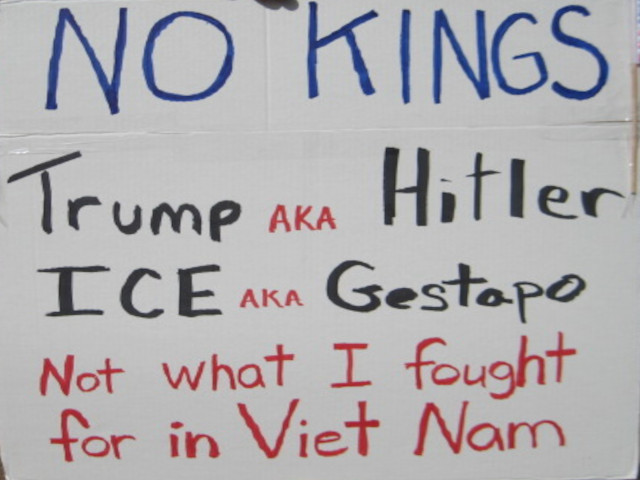 NO KINGS
Trump AKA Hitler
ICE AKA Gestapo
Not what I fought
for in Viet Nam